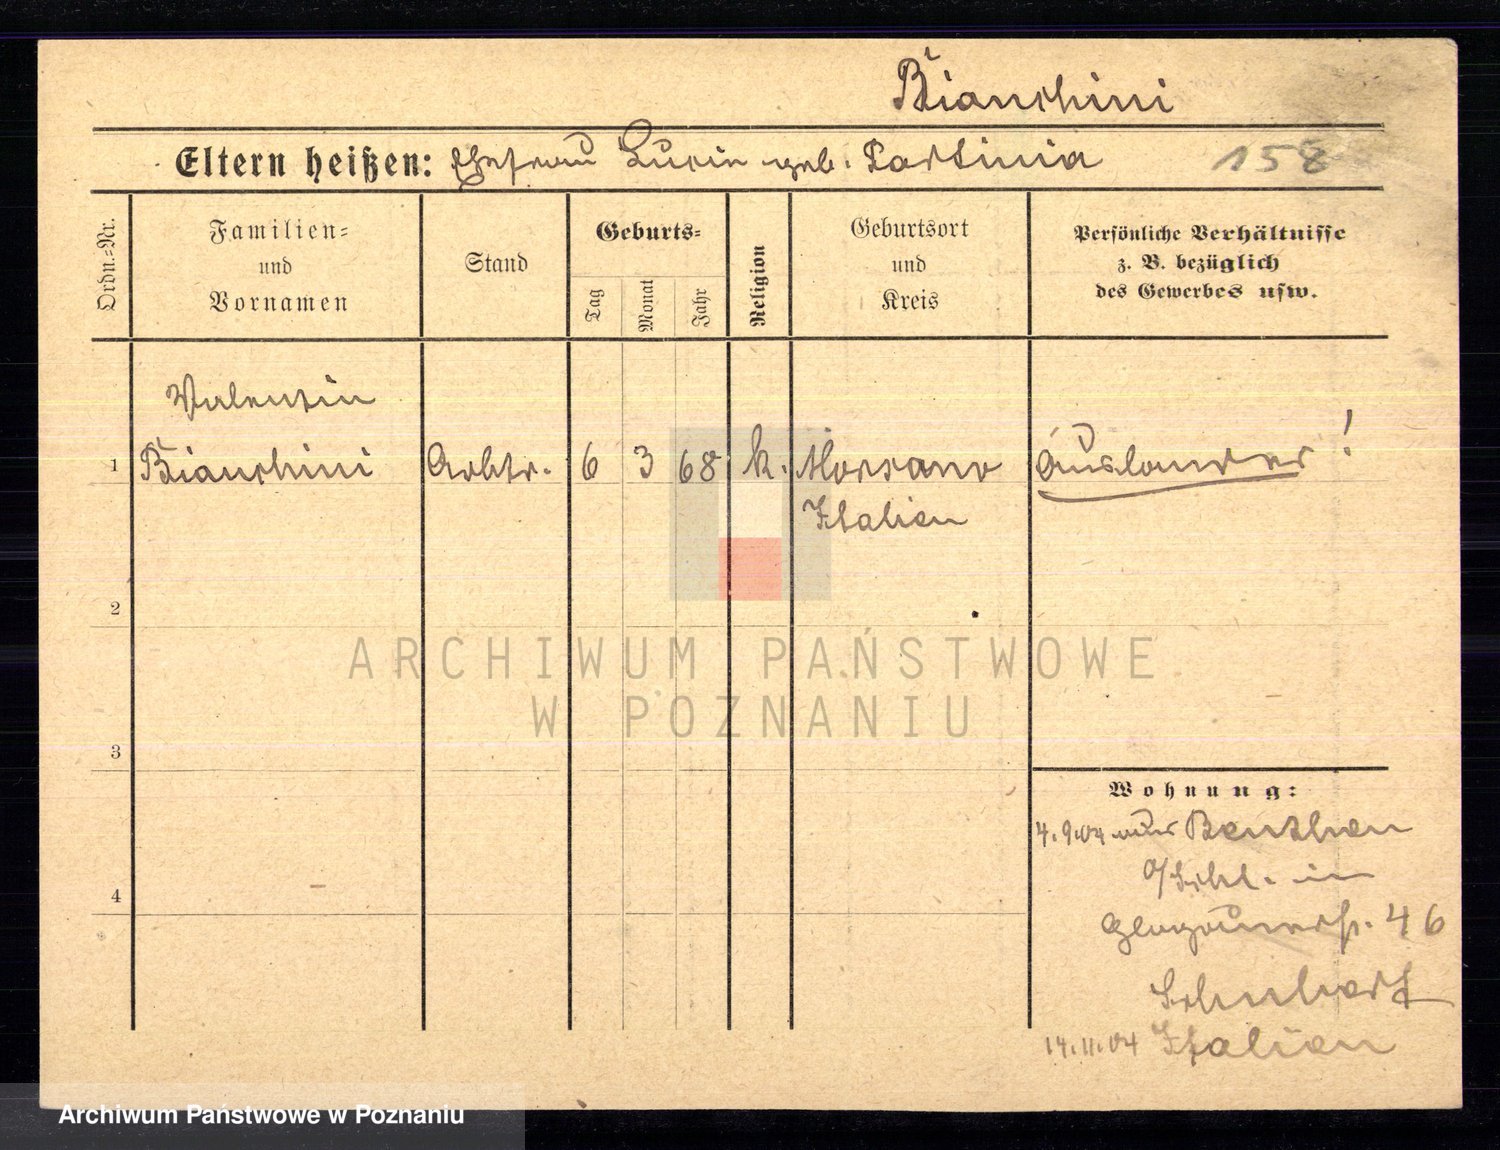 Bianchini
Eltern heißen: Ehefrau Lucia geb. Partinia 158
Ordn.-Nr.
Familien-
und
Vornamen
Stand
Geburts-
Tag
Monat
Jahr
Religion
Geburtsort
und
Kreis
Persönliche Verhältnisse
z. B. bezüglich
des Gewerbes usw.
Valentin
1 Bianchini Arbtr. 6 3 68 k. Morsano Ausländer!
Italien
2
3
4
Wohnung:
4.9.04 aus Beuthen
O/Schl. in
Glogauerstr. 46
14.11.04 Italien
ARCHIWUM PAŃSTWOWE
W POZNANIU
Archiwum Państwowe w Poznaniu